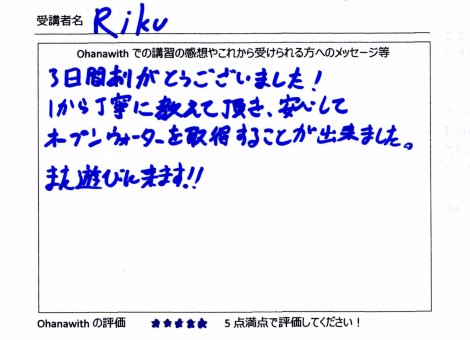 受講者名 Riku
Ohanawith での講習の感想やこれから受けられる方へのメッセージ等
3日間ありがとうございました！
1から丁寧に教えて頂き、安心して
オープンウォーターを取得することが出来ました。
また遊びに来ます!!
Ohanawith の評価 ★★★★★ 5 点満点で評価してください！